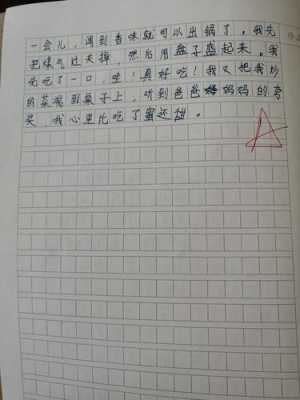 一会儿，闻到香味就可以出锅了。我先
把煤气灶关掉，然后用盘子盛起来。我
先吃了一口，哇！真好吃！我又把我炒
的菜端到桌子上，听到爸爸妈妈的夸
奖，我心里比吃了蜜还甜。
A